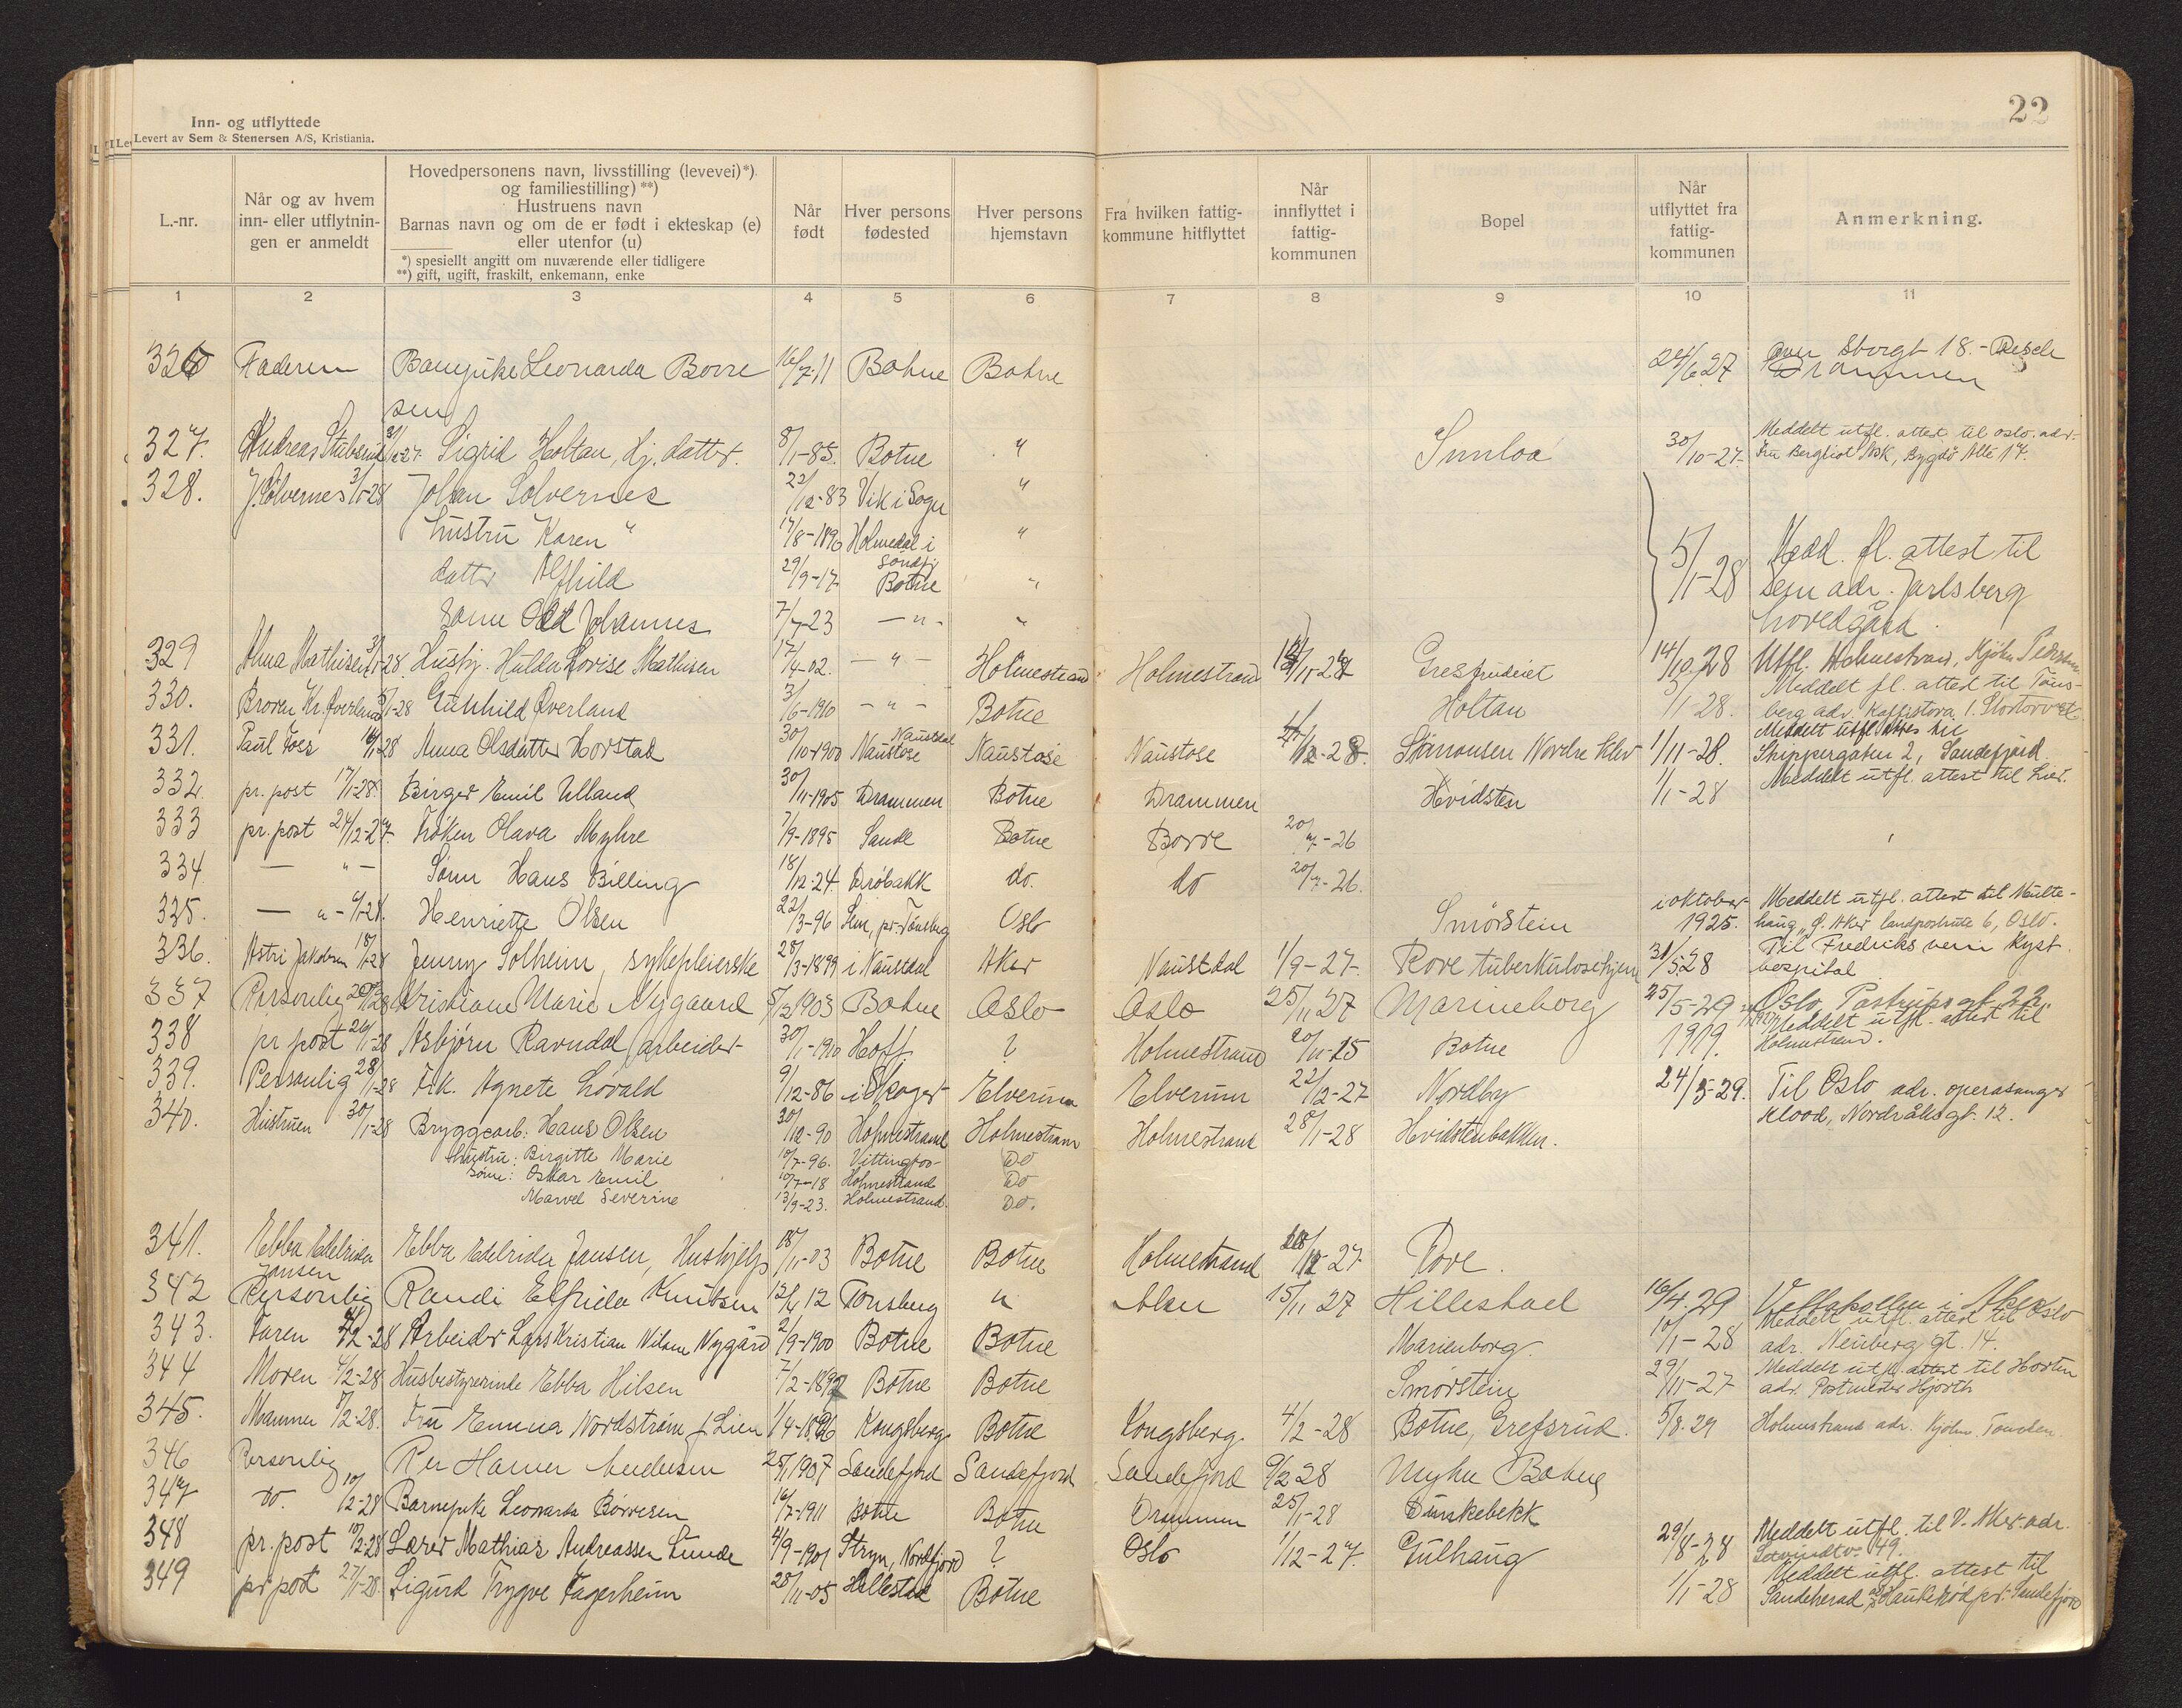 Inn- og utflyttede
Levert av Sem & Stenersen A/S, Kristiania.
22
L.-nr.
Når og av hvem inn- eller utflytnin-gen er anmeldt
Hovedpersonens navn, livsstilling (levevei)*)
og familiestilling) **)
Hustruens navn
Barnas navn og om de er født i ekteskap (e)
eller utenfor (u)
*) spesiellt angitt om nuværende eller tidligere
**) gift, ugift, fraskilt, enkemann, enke
Når født
Hver persons fødested
Hver persons hjemstavn
Fra hvilken fattig-kommune hitflyttet
Når innflyttet i fattig-kommunen
Bopel
Når utflyttet fra fattig-kommunen
Anmerkning.
1 2 3 4 5 6 7 8 9 10 11
326 Faderen Barnepike Leonarda Borre 16/7-11 Botne Botne 24/6 27
sen Drammen
327. Andreas Stubsrud Sigrid Holtan, hj. datter. 8/1-85. Botne " 30/10-27 Meddelt utfl. attest til oslo. adr.
Fru Bergliot Ask, Bygdö Allé 17.
328. J. Sølvernes 3/1-28 Johan Solvernes 22/12-83 Vik i Sogn "
hustru Karen " 17/8-1896 Holmedal i Søndfj. " 5/1-28 Medd. fl. attest til
datter Alfhild 29/9-17 Botne " Sem adr. Jarlsberg
Sønn Odd Johannes 7/7-23 - " - " hovedgård.
329 Alma Mathisen 3/1-28. Hushj. Hulda Lovise Mathisen 17/4-02. - " - Holmestrand Holmestrand 14/10.28 Utfl. Holmestrand, Kjøbm Pedersen
330. Broren Kr. Øverland 3/1-28 Gunhild Øverland 3/6-1910 - " - Botne Holtan 5/1-28. Meddelt fl. attest til Tøns-
berg adr. Kaffistova 1. Stortorvet
331. Paul Foss Anna Olsdatter Horstad 30/10-1900 Naustdal Naustdal Simonsen Nordre Klev 1/11-28. Meddelt utfl.
Skippergaten 2, Sandefjord.
332. pr. post 17/1-28. Birger Emil Ulland 30/11-1905 Drammen Botne Drammen Hvidsten 1/1-28 Meddelt utfl. attest til Lier.
333 pr. post 24/12-27. Frøken Olava Myhre 7/9-1895 Sande Botne Borre 20/7-26
334. - " - Sønn Hans Billing 18/12-24. Drøbakk do. do 20/7-26.
335. - " - 6/1-28. Henriette Olsen 22/3-96 Sem, pr. Tønsberg Oslo Smørstein i oktober 1925. Meddelt utfl. attest til Multe-
haug, Ø. Aker landpostrute 6, Oslo.
336. Astri Jakobsen 18/1-28 Jenny Solheim, sykepleierske 28/3-1899 i Naustdal Aker Naustdal 1/9-27. Rove tuberkulosehjem 31/5 28 Til Fredriksvern Kyst
hospital
337 Personlig Kristiane Marie Nygaard 5/2 1903 Botne Oslo Oslo 25/11 27 Marineborg 25/5-29 Oslo
338 pr post 26/1-28 Asbjørn Ravndal, arbeider 30/1-1910 Hoff ? Holmestrand 20/11-25 Botne 1919. Meddelt utfl. attest til
Holmestrand.
339. Personlig 28/1-28 Frk. Agnete Lovald 9/12-86 i Skoger Elverum Elverum 22/12-27 Nordby 24/5-29. Til Oslo adr. operasanger
Klood, Nordråksgt. 12.
340. Hustruen 30/1-28 Bryggearb: Hans Olsen 30/12-90 Holmestrand Holmestrand Holmestrand 28/1-28 Hvidstenbakken.
hustru: Birgitte Marie 10/7-96. Vittingfos Do
Børn: Oskar Emil 10/7-18 Holmestrand Do
Marvel Severine 13/9-23. Holmestrand. Do.
341. Ebba Edelrida Jansen Ebba Edelrida Jansen, Hushjelp 18/11-03 Botne Botne Holmestrand Rove.
342 Personlig Randi Elfrida Knutsen 12/4 12 Tønsberg " 15/11 27 Hillestad 16/4.29 Voksenkollen i Aker
343. Faren Arbeider Lars Kristian Nilsen Nygård 2/9-1900 Botne Botne Marienborg. 10/1-28 Meddelt utfl. attest til Oslo
adr. Neuberg gt. 14.
344 Moren 4/2-28 Husbestyrerinde Ebba Hilsen 7/2-1892 Botne Botne Smørstein 29/11-27 Meddelt utfl. attest til Horten
adr. Postmester Hjorth
345. Mannen 8/2-28. Fru Emma Nordstrøm f. Lien Kongsberg. Botne Kongsberg. 4/2-28 Botne, Grefsrud. 5/8-29 Holmestrand adr. Kjøbm. Tonden.
346 Personlig Per Hamer Andersen 25/1 1907 Sandefjord Sandefjord Sandefjord 9/2 28 Myhre Botne
347 do. 10/2-28 Barnepike Leonarda Børresen 16/7-1911 Botne Botne Drammen 25/1-28 Dunkebekk
348 pr. post 10/2-28 Lærer Mathias Andreassen Lunde 4/9-1901 Stryn, Nordfjord ? Oslo 1/12-27. Gulhaug 29/8-28 Meddelt utfl. til V. Aker. adr.
49.
349 pr post 27/1-28. Sigurd Trygve Fagerheim 28/11-05 Hillestad Botne 1/1-28 Meddelt utfl. attest til
Sandeherad, Haukerød pr. Sandefjord